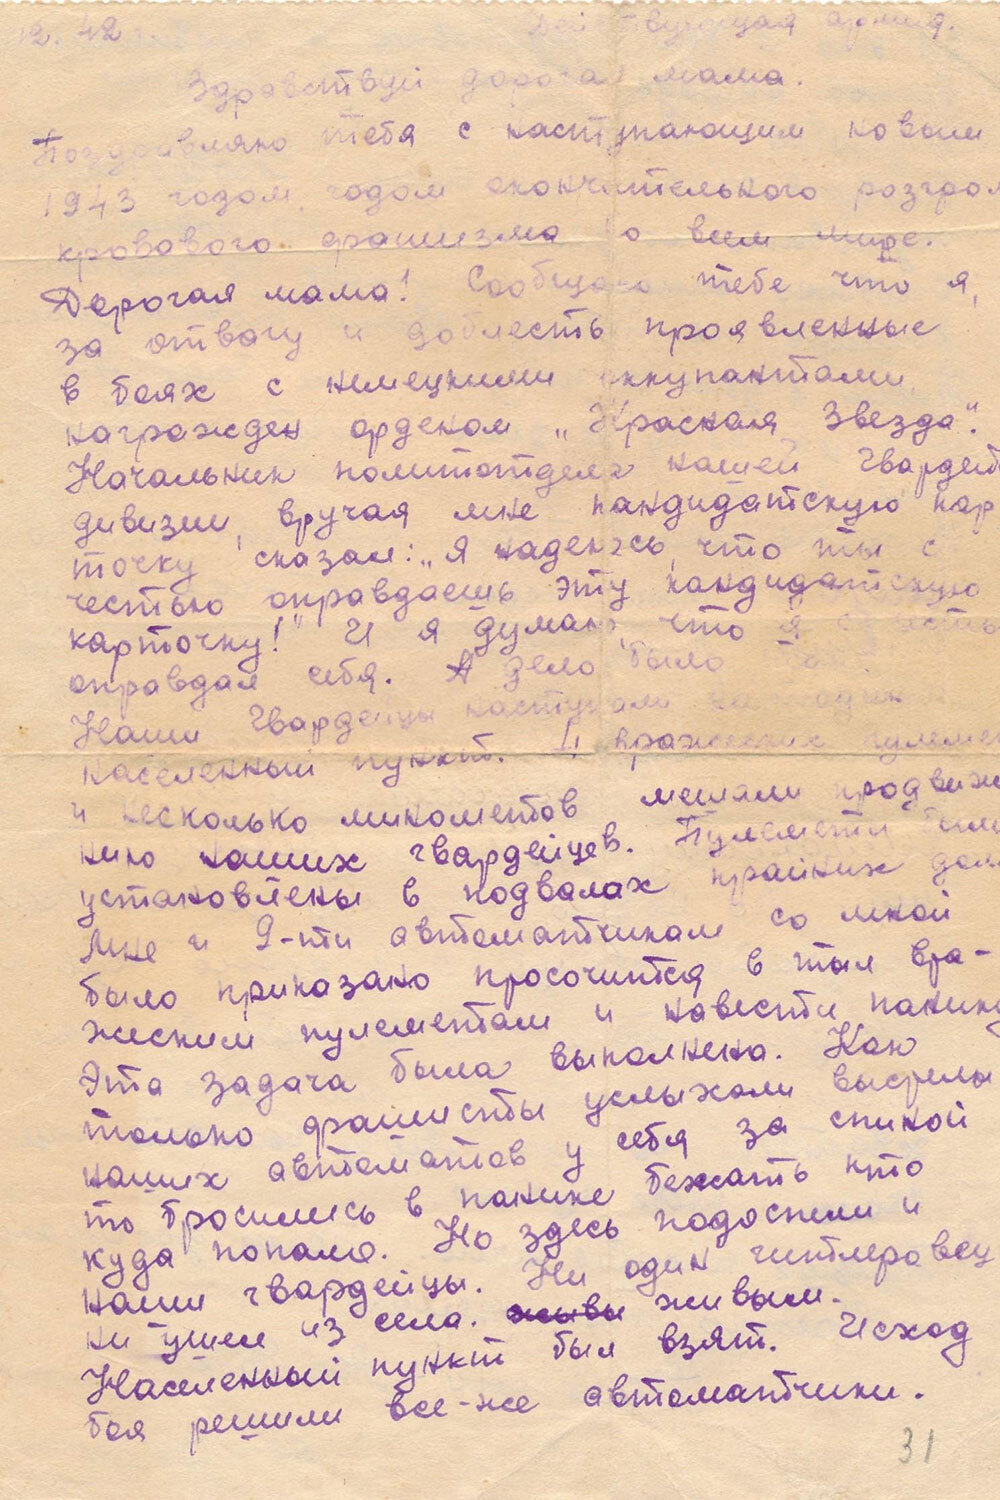 12. 42 г. Действующая армия.
Здравствуй дорогая мама.
Поздравляю тебя с наступающим новым
1943 годом, годом окончательного разгром
кровавого фашизма во всем мире.
Дорогая мама! Сообщаю тебе что я,
за отвагу и доблесть проявленные
в боях с немецкими оккупантами,
награжден орденом „Красная Звезда".
Начальник политотдела нашей гвардейс
дивизии, вручая мне кандидатскую кар
точку сказал: „Я надеюсь, что ты с
честью оправдаешь эту кандидатскую
карточку!" И я думаю, что я с честь
оправдал себя. А дело было так.
Наши гвардейцы наступали на один
населенный пункт. 4 вражеских пулемет
и несколько минометов мешали продвиже
нию наших гвардейцев. Пулеметы были
установлены в подвалах крайних дом
Мне и 9-ти автоматчикам со мной
было приказано просочится в тыл вра-
жеским пулеметам и навести панику
Эта задача была выполнена. Как
только фашисты услыхали высрелы
наших автоматов у себя за спиной
то бросились в панике бежать кто
куда попало. Но здесь подоспели и
наши гвардейцы. Ни один гитлеровец
ни ушел из села. живы живым.
Населенный пункт был взят. Исход
боя решили все-же автоматчики.
31